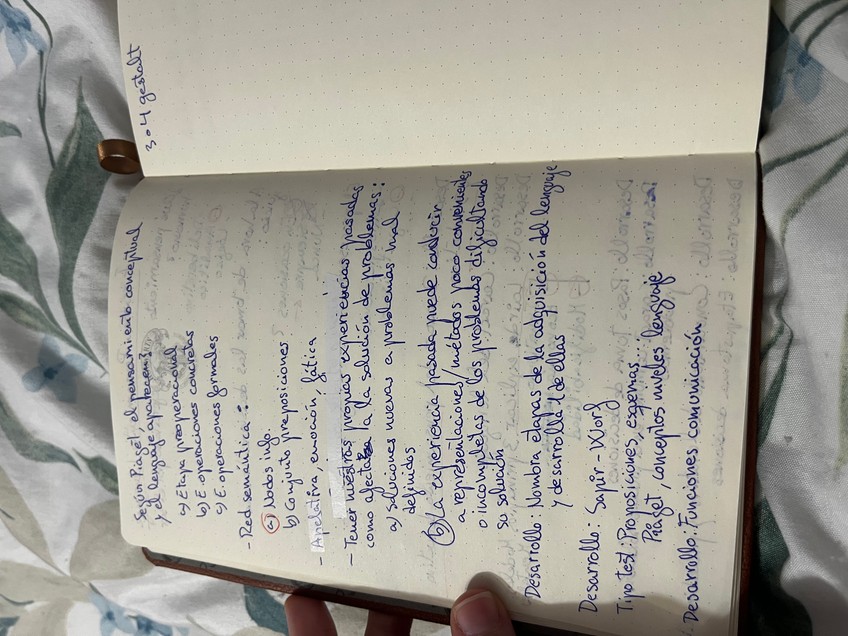 3 o 4 gestalt
Según Piaget, el pensamiento conceptual
y el lenguaje aparecen:
a) Etapa preoperacional
b) E operaciones concretas
c) E. operaciones formales
- Red semántica:
a) Nodos info.
b) Conjunto preposiciones
- Apelativa, emoción, fática
- Tener nuestras propias experiencias pasadas
como afecta la la solución de problemas:
a) soluciones nuevas a problemas mal
definidos
b) La experiencia pasada puede conducir
a representaciones/métodos poco convenientes
o incompletas de los problemas dificultando
so solución
- Desarrollo: Nombra etapas de la adquisición del lenguaje
y desarrolla 1 de ellas
Desarrollo: Sapir-Worf
Tipo test: Proposiciones, esquemas
Piaget, conceptos niveles lenguaje
- Desarrollo: Funciones comunicación